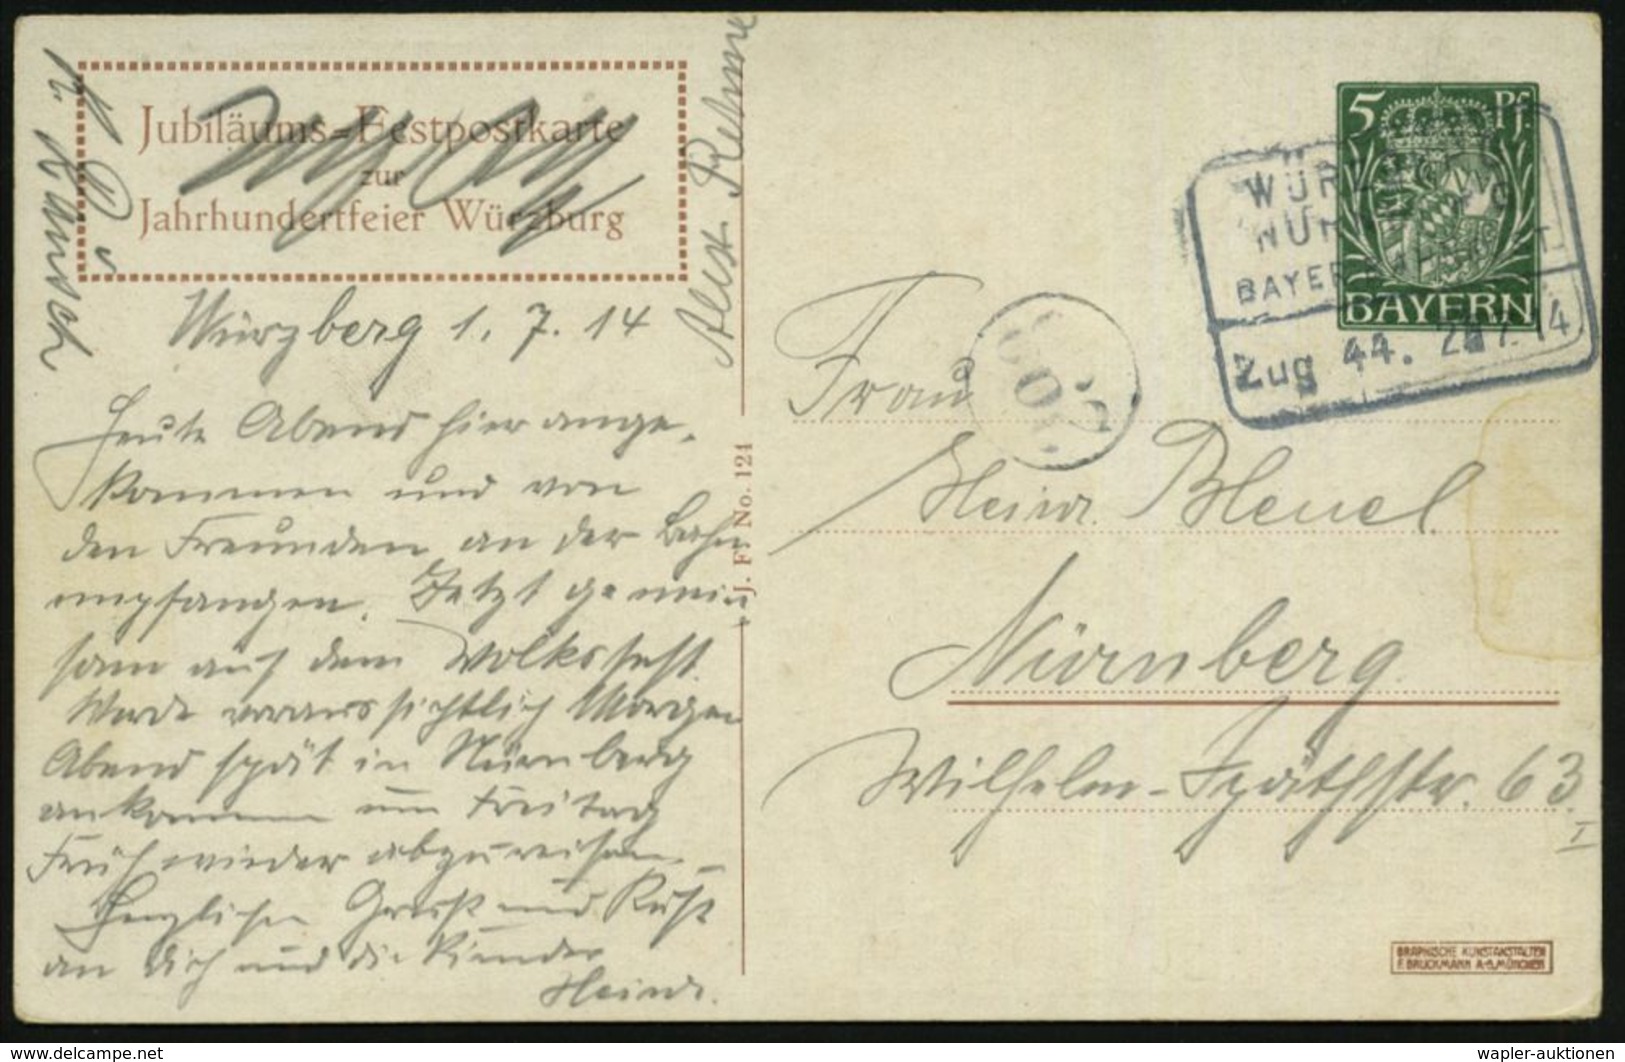 Jubiläums-Festpostkarte
zur
Jahrhundertfeier Würzburg
Würzberg 1. 7. 14
Heute Abend hier ange-
kommen und von
den Freunden an der Bahn
empfangen. Jetzt gemein
sam auf dem Volksfest.
Werde voraussichtlich Morgen
Abend spät in Nürnberg
ankommen um Freitag
Früh wieder abzureisen.
Herzlichen Gruß und Kuß
an Dich und die Kinder
Heinr.
J. F. No. 121
5 Pf.
BAYERN
NÜR
BAYER
Zug 44. 7. 14
Frau
Heinr. Bleuel
Nürnberg
Wilhelm-Späthstr. 63
I
GRAPHISCHE KUNSTANSTALTEN
F. BRUCKMANN A-G. MÜNCHEN
www.delcampe.net
wapler-auktionen